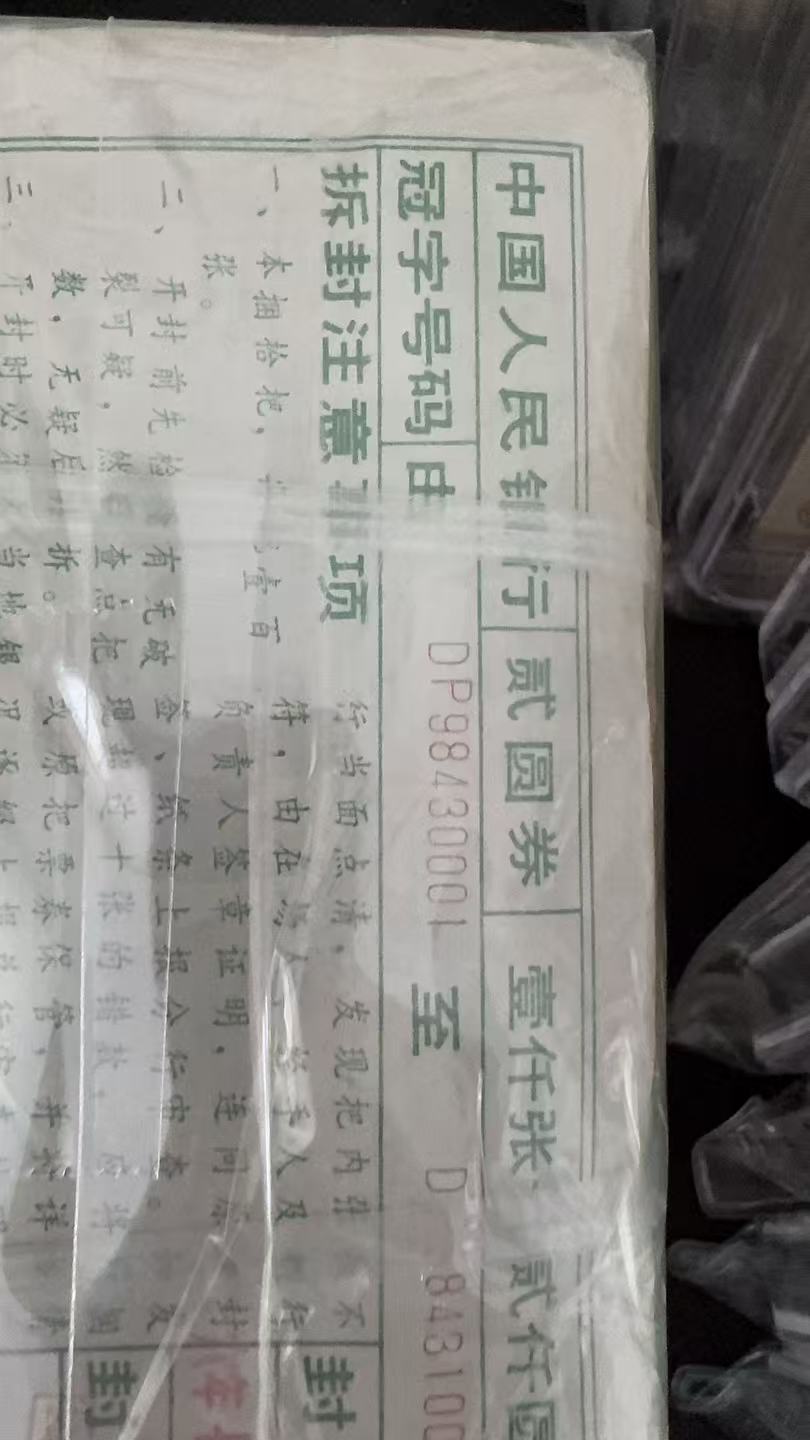 中国人民银行 贰圆券 壹仟张 贰仟圆
冠字号码 由 DP98430001 至 D 843100
拆封注意事项
一、本捆拾把, 壹百
张。
二、开封前先检 有无破
裂可疑, 然 查点把
数, 无疑后 拆。
三、开封时必 当地银
行当面点清, 发现把内 不
符, 由在场人 手人及 行
负责人签章证明, 连同原封
签、纸条上报分行审查。 发
现超过十张的错款, 应将
或原把票券保管, 并 详
况逐级上报
封
封